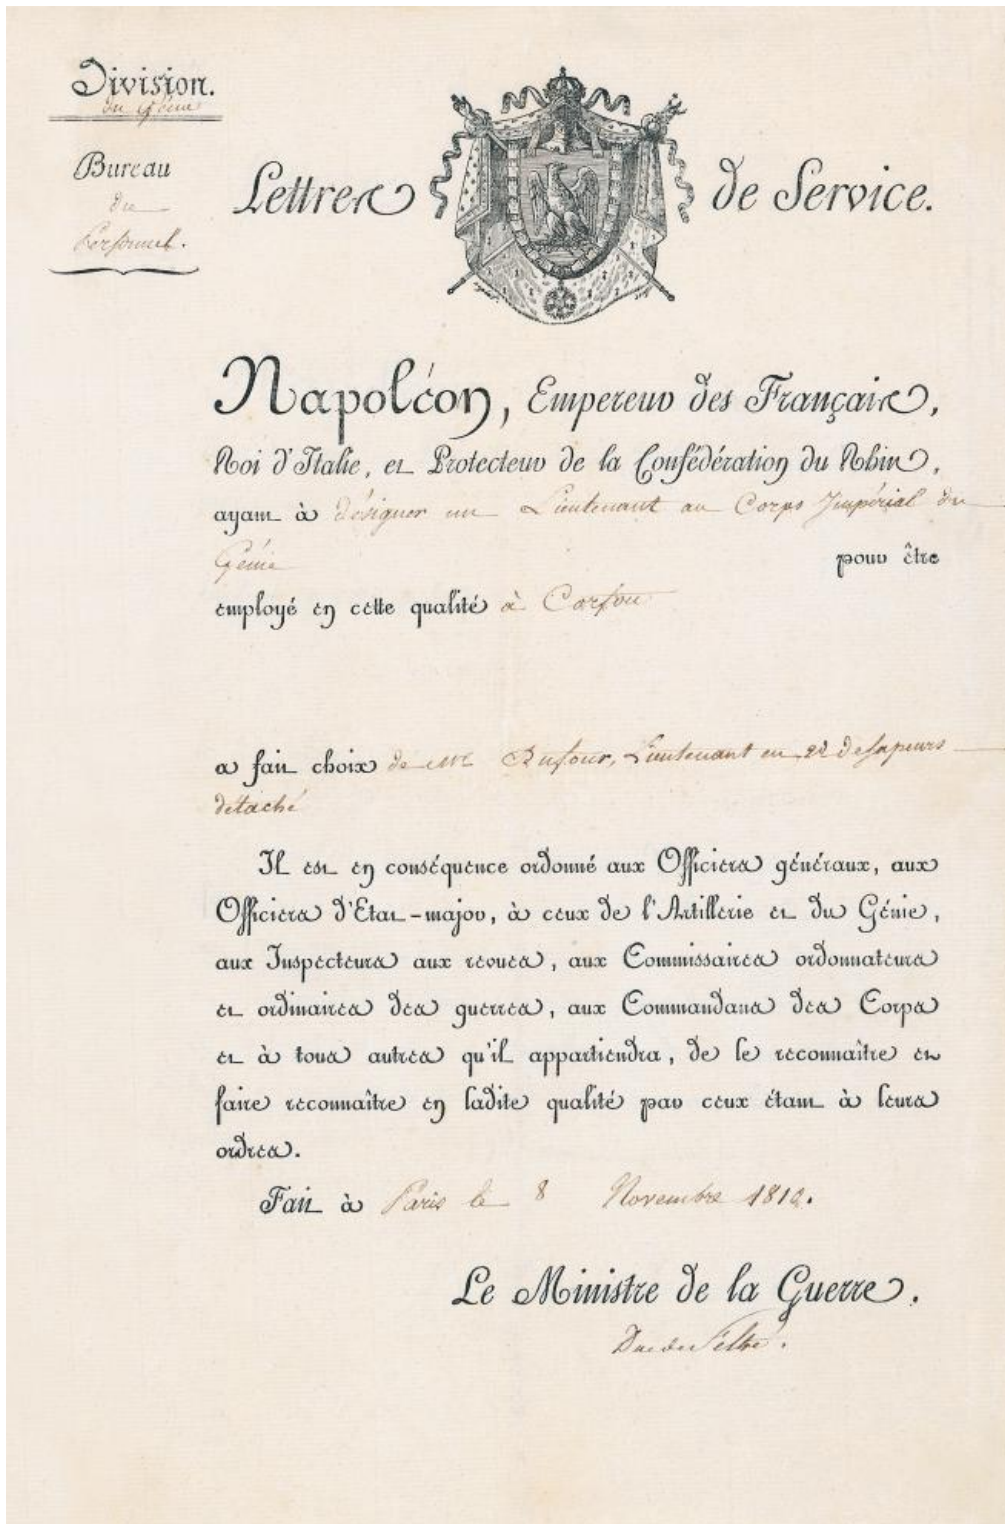 Division.
du Génie
Bureau
du
Personnel.
Lettres de Service.
Napoléon, Empereur des Français,
Roi d'Italie, et Protecteur de la Confédération du Rhin,
ayant à désigner un Lieutenant au Corps Impérial du
Génie pour être
employé en cette qualité à Corfou
a fait choix de Mr Dufour, Lieutenant en 2d de Sapeurs
détaché
Il est en conséquence ordonné aux Officiers généraux, aux
Officiers d'Etat-major, à ceux de l'Artillerie et du Génie,
aux Inspecteurs aux revues, aux Commissaires ordonnateurs
et ordinaires des guerres, aux Commandans des Corps
et à tous autres qu'il appartiendra, de le reconnaître et
faire reconnaître en ladite qualité par ceux étant à leurs
ordres.
Fait à Paris le 8 Novembre 1810.
Le Ministre de la Guerre.
Duc de Feltre.